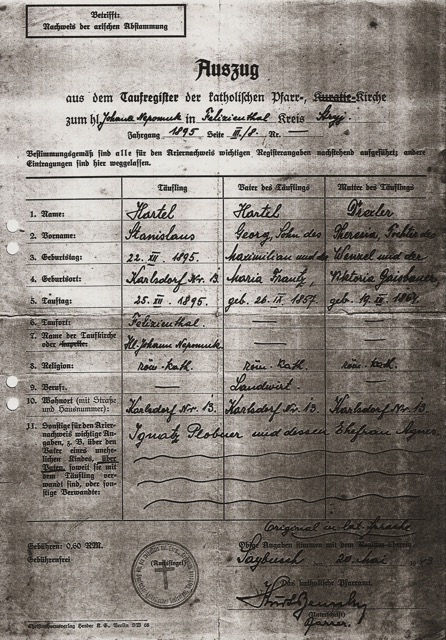 Betrifft:
Nachweis der arischen Abstammung
Auszug
aus dem Taufregister der katholischen Pfarr-, Kuratie-Kirche
zum hl. Johann Nepomuk in Felizienthal Kreis Stryj.
Jahrgang 1895. Seite III/8. Nr. —
Bestimmungsgemäß sind alle für den Ariernachweis wichtigen Registerangaben nachstehend aufgeführt; andere
Eintragungen sind hier weggelassen.
Täufling Vater des Täuflings Mutter des Täuflings
1. Name: Hartel Hartel Drexler
2. Vorname: Stanislaus Georg, Sohn des Theresia, Tochter des
3. Geburtstag: 22. XII 1895. Maximilian und der Wenzel und der
4. Geburtsort: Karlsdorf Nr. 13. Maria Frantz, Viktoria Gaisbauer,
5. Tauftag: 25. XII 1895. geb. 26. IX 1857. geb. 19. IX
6. Taufort: Felizienthal. — —
7. Name der Taufkirche
oder Kapelle: Hl. Johann Nepomuk — —
8. Religion: röm-kath. röm-kath. röm-kath.
9. Beruf: — Landwirt. —
10. Wohnort (mit Straße
und Hausnummer): Karlsdorf Nr. 13. Karlsdorf Nr. 13. Karlsdorf Nr. 13.
11. Sonstige für den Arier-
nachweis wichtige An-
gaben, z. B. über den
Vater eines unehe-
lichen Kindes, über
Paten, soweit sie mit
dem Täufling ver-
wandt sind, oder son-
stige Verwandte:
Ignatz und dessen Ehefrau Agnes
Original in lat. Sprache
Gebühren: 0,60 RM.
Gebührenfrei
(Amtssiegel)
Obige Angaben stimmen mit dem
Saybusch 20. Mai
Das katholische Pfarramt.
(Unterschrift)
Pfarrer.
Herder K. G., Berlin SW 68